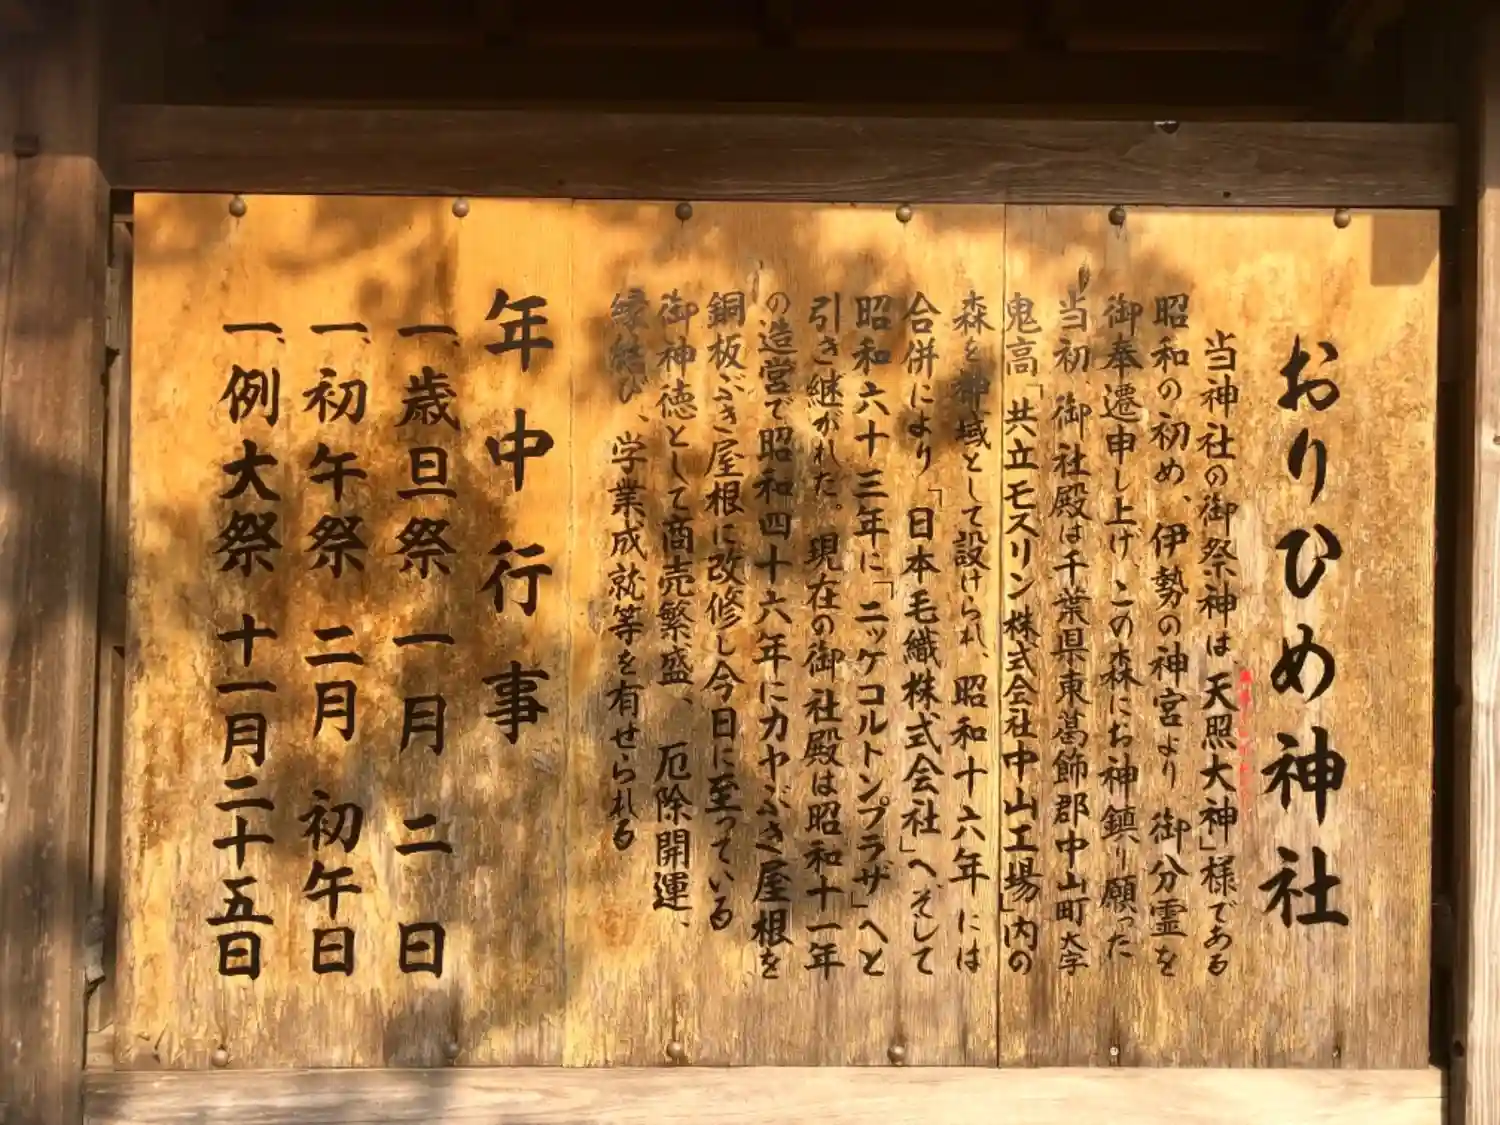 おりひめ神社
当神社の御祭神は「天照大神」様である
昭和の初め、伊勢の神宮より御分霊を
御奉遷申し上げ、この森にお神鎮り願った
当初、御社殿は千葉県東葛飾郡中山町大字
鬼高「共立モスリン株式会社中山工場」内の
森を神域として設けられ、昭和十六年には
合併により「日本毛織株式会社」へ、そして
昭和六十三年に「ニッケコルトンプラザ」へと
引き継がれた。現在の御社殿は昭和十一年
の造営で昭和四十六年にカヤぶき屋根を
銅板ぶき屋根に改修し今日に至っている
御神徳として商売繁盛、厄除開運、
縁結び、学業成就等を有せられる
年中行事
一、歳旦祭 一月二日
一、初午祭 二月 初午日
一、例大祭 十一月二十五日